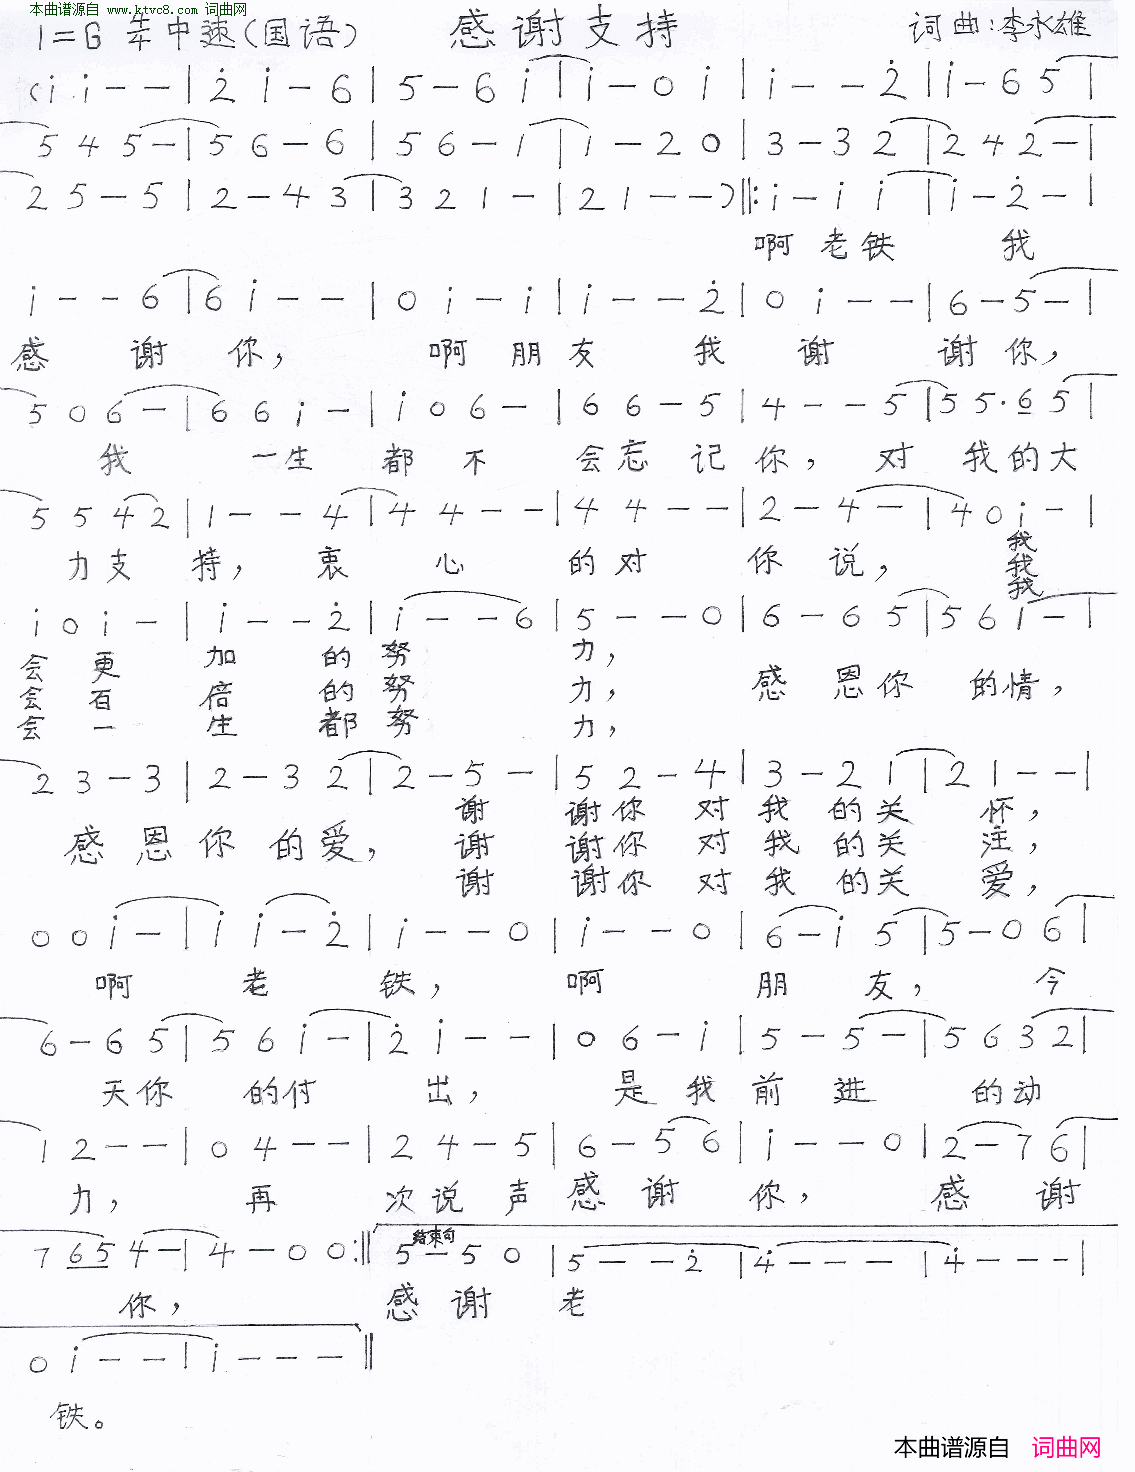 本曲谱源自 www.ktvc8.com 词曲网
1=G 4/4 中速(国语) 感谢支持 词曲:李永雄
(i i - - | 2 i - 6 | 5 - 6 i | i - 0 i | i - - 2 | i - 6 5 |
5 4 5 - | 5 6 - 6 | 5 6 - 1 | 1 - 2 0 | 3 - 3 2 | 2 4 2 - |
2 5 - 5 | 2 - 4 3 | 3 2 1 - | 2 1 - - ) ‖: i - i i | i - 2 - |
啊 老铁 我
i - - 6 | 6 i - - | 0 i - i | i - - 2 | 0 i - - | 6 - 5 - |
感 谢 你, 啊 朋 友 我 谢 谢 你,
5 0 6 - | 6 6 i - | i 0 6 - | 6 6 - 5 | 4 - - 5 | 5 5 · 6 5 |
我 一生 都 不 会忘 记 你, 对 我的大
5 5 4 2 | 1 - - 4 | 4 4 - - | 4 4 - - | 2 - 4 - | 4 0 i - |
力支 持, 衷 心 的对 你 说, 我
我
我
i 0 i - | i - - 2 | i - - 6 | 5 - - 0 | 6 - 6 5 | 5 6 1 - |
会 更 加 的 努 力,
会 百 倍 的 努 力, 感 恩你 的情,
会 一 生 都 努 力,
2 3 - 3 | 2 - 3 2 | 2 - 5 - | 5 2 - 4 | 3 - 2 1 | 2 1 - - |
谢 谢你 对 我 的关 怀,
感 恩 你 的爱, 谢 谢你 对 我 的关 注,
谢 谢你 对 我 的关 爱,
0 0 i - | i i - 2 | i - - 0 | i - - 0 | 6 - i 5 | 5 - 0 6 |
啊 老 铁, 啊 朋 友, 今
6 - 6 5 | 5 6 i - | 2 i - - | 0 6 - i | 5 - 5 - | 5 6 3 2 |
天你 的付 出, 是 我 前 进 的动
1 2 - - | 0 4 - - | 2 4 - 5 | 6 - 5 6 | i - - 0 | 2 - 7 6 |
力, 再 次说 声 感 谢 你, 感 谢
7 6 5 4 - | 4 - 0 0 :‖ 结束句 5 - 5 0 | 5 - - 2 | 4 - - - | 4 - - - |
你, 感 谢 老
0 i - - | i - - - ‖
铁。
本曲谱源自 词曲网